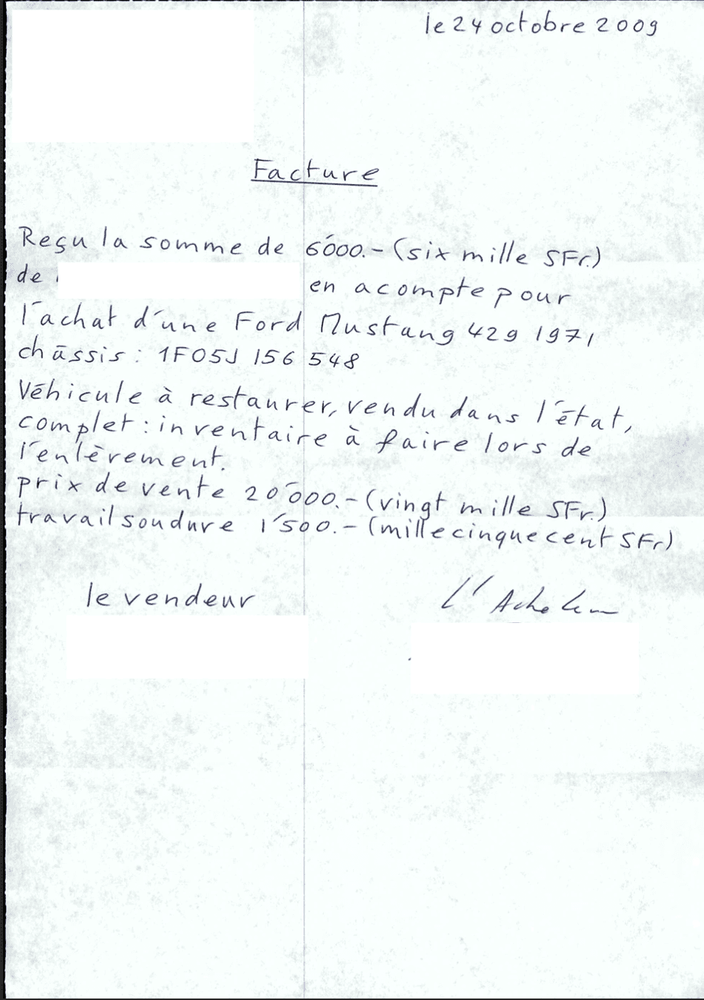 le 24 octobre 2009
Facture
Reçu la somme de 6'000.- (six mille SFr.)
de en acompte pour
l'achat d'une Ford Mustang 429 1971
châssis : 1F05J 156 548
Véhicule à restaurer, vendu dans l'état,
complet : inventaire à faire lors de
l'enlèvement.
prix de vente 20'000.- (vingt mille SFr.)
travail soudure 1'500.- (mille cinque cent SFr)
le vendeur L'Acheteur